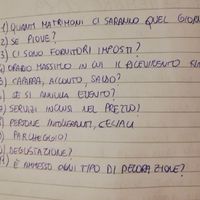 1) QUANTI MATRIMONI CI SARANNO QUEL GIORNO
2) SE PIOVE?
3) CI SONO FORNITORI IMPOSTI?
ORARIO MASSIMO IN CUI IL RICEVIMENTO
CAPARRA, ACCONTO, SALDO?
SE SI ANNULLA EVENTO?
7) SERVIZI INCLUSI NEL PREZZO?
PERSONE INTOLLERANTI, CELIACI
PARCHEGGIO?
DEGUSTAZIONE?
È AMMESSO OGNI TIPO DI DECORAZIONE?